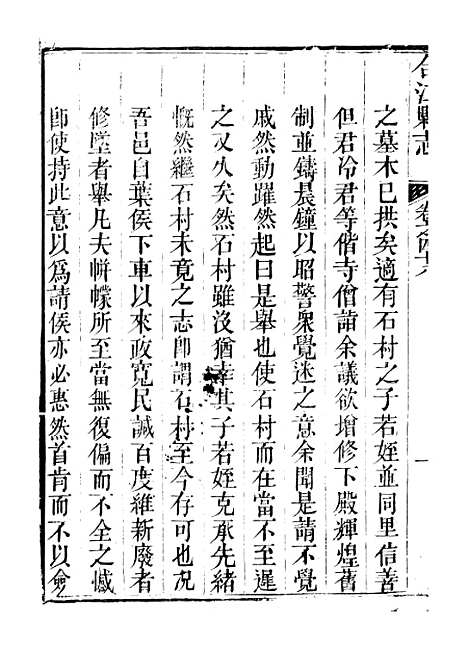 合江縣志
之墓木已拱矣適有石村之子若姪並同里信善
但君冷君等偕寺僧詣余議欲增修下殿輝煌舊
制並鑄晨鐘以昭警衆覺迷之意余聞是請不覺
戚然動躍然起曰是舉也使石村而在當不至遲
之又久矣然石村雖沒猶幸其子若姪克承先緒
慨然繼石村未竟之志卽謂石村至今存可也况
吾邑自葉侯下車以來政寬民誠百度維新廢者
修墜者舉凡夫帡幪所至當無復偏而不全之憾
卽使持此意以爲請侯亦必惠然首肯而不以僉